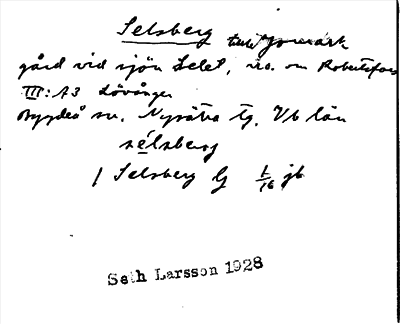 Selsberg
gård vid sjön Selet, no. om Robertsfors
III: A3 Lövånger
Bygdeå sn. Nysätra tg. Vb län
sélsberg
1 Selsberg G 1/16 jb
Seth Larsson 1928